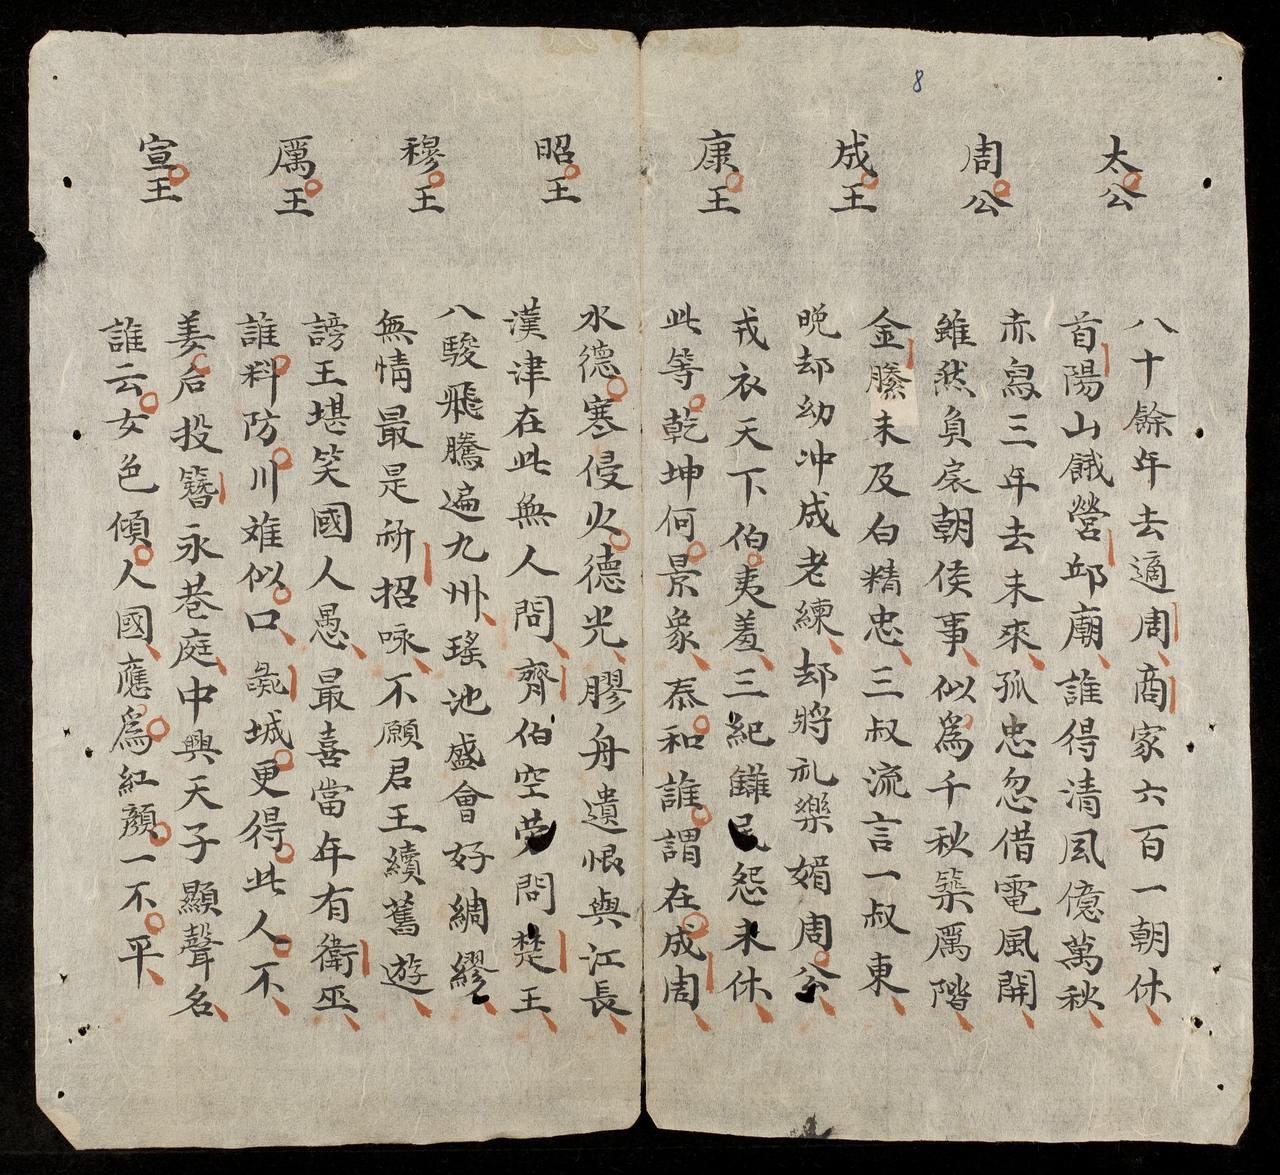 8
太公
八十餘年去適周商家六百一朝休
首陽山餓營邱廟誰得清風億萬秋
周公
赤舄三年去未來孤忠忽借電風開
雖然負扆朝侯事似爲千秋築厲階
成王
金縢未及白精忠三叔流言一叔東
晩却幼冲成老練却將礼樂婿周公
康王
戎衣天下伯夷羞三紀讎民怨未休
此等乾坤何景象泰和誰謂在成周
昭王
水德寒侵火德光膠舟遺恨與江長
漢津在此無人問齊伯空勞問楚王
穆王
八駿飛騰遍九州瑤池盛會好綢繆
無情最是祈招咏不願君王續舊遊
厲王
謗王堪笑國人愚最喜當年有衛巫
誰料防川难似口彘城更得此人不
宣王
姜后投簪永巷庭中興天子顯聲名
誰云女色傾人國應爲紅顏一不平